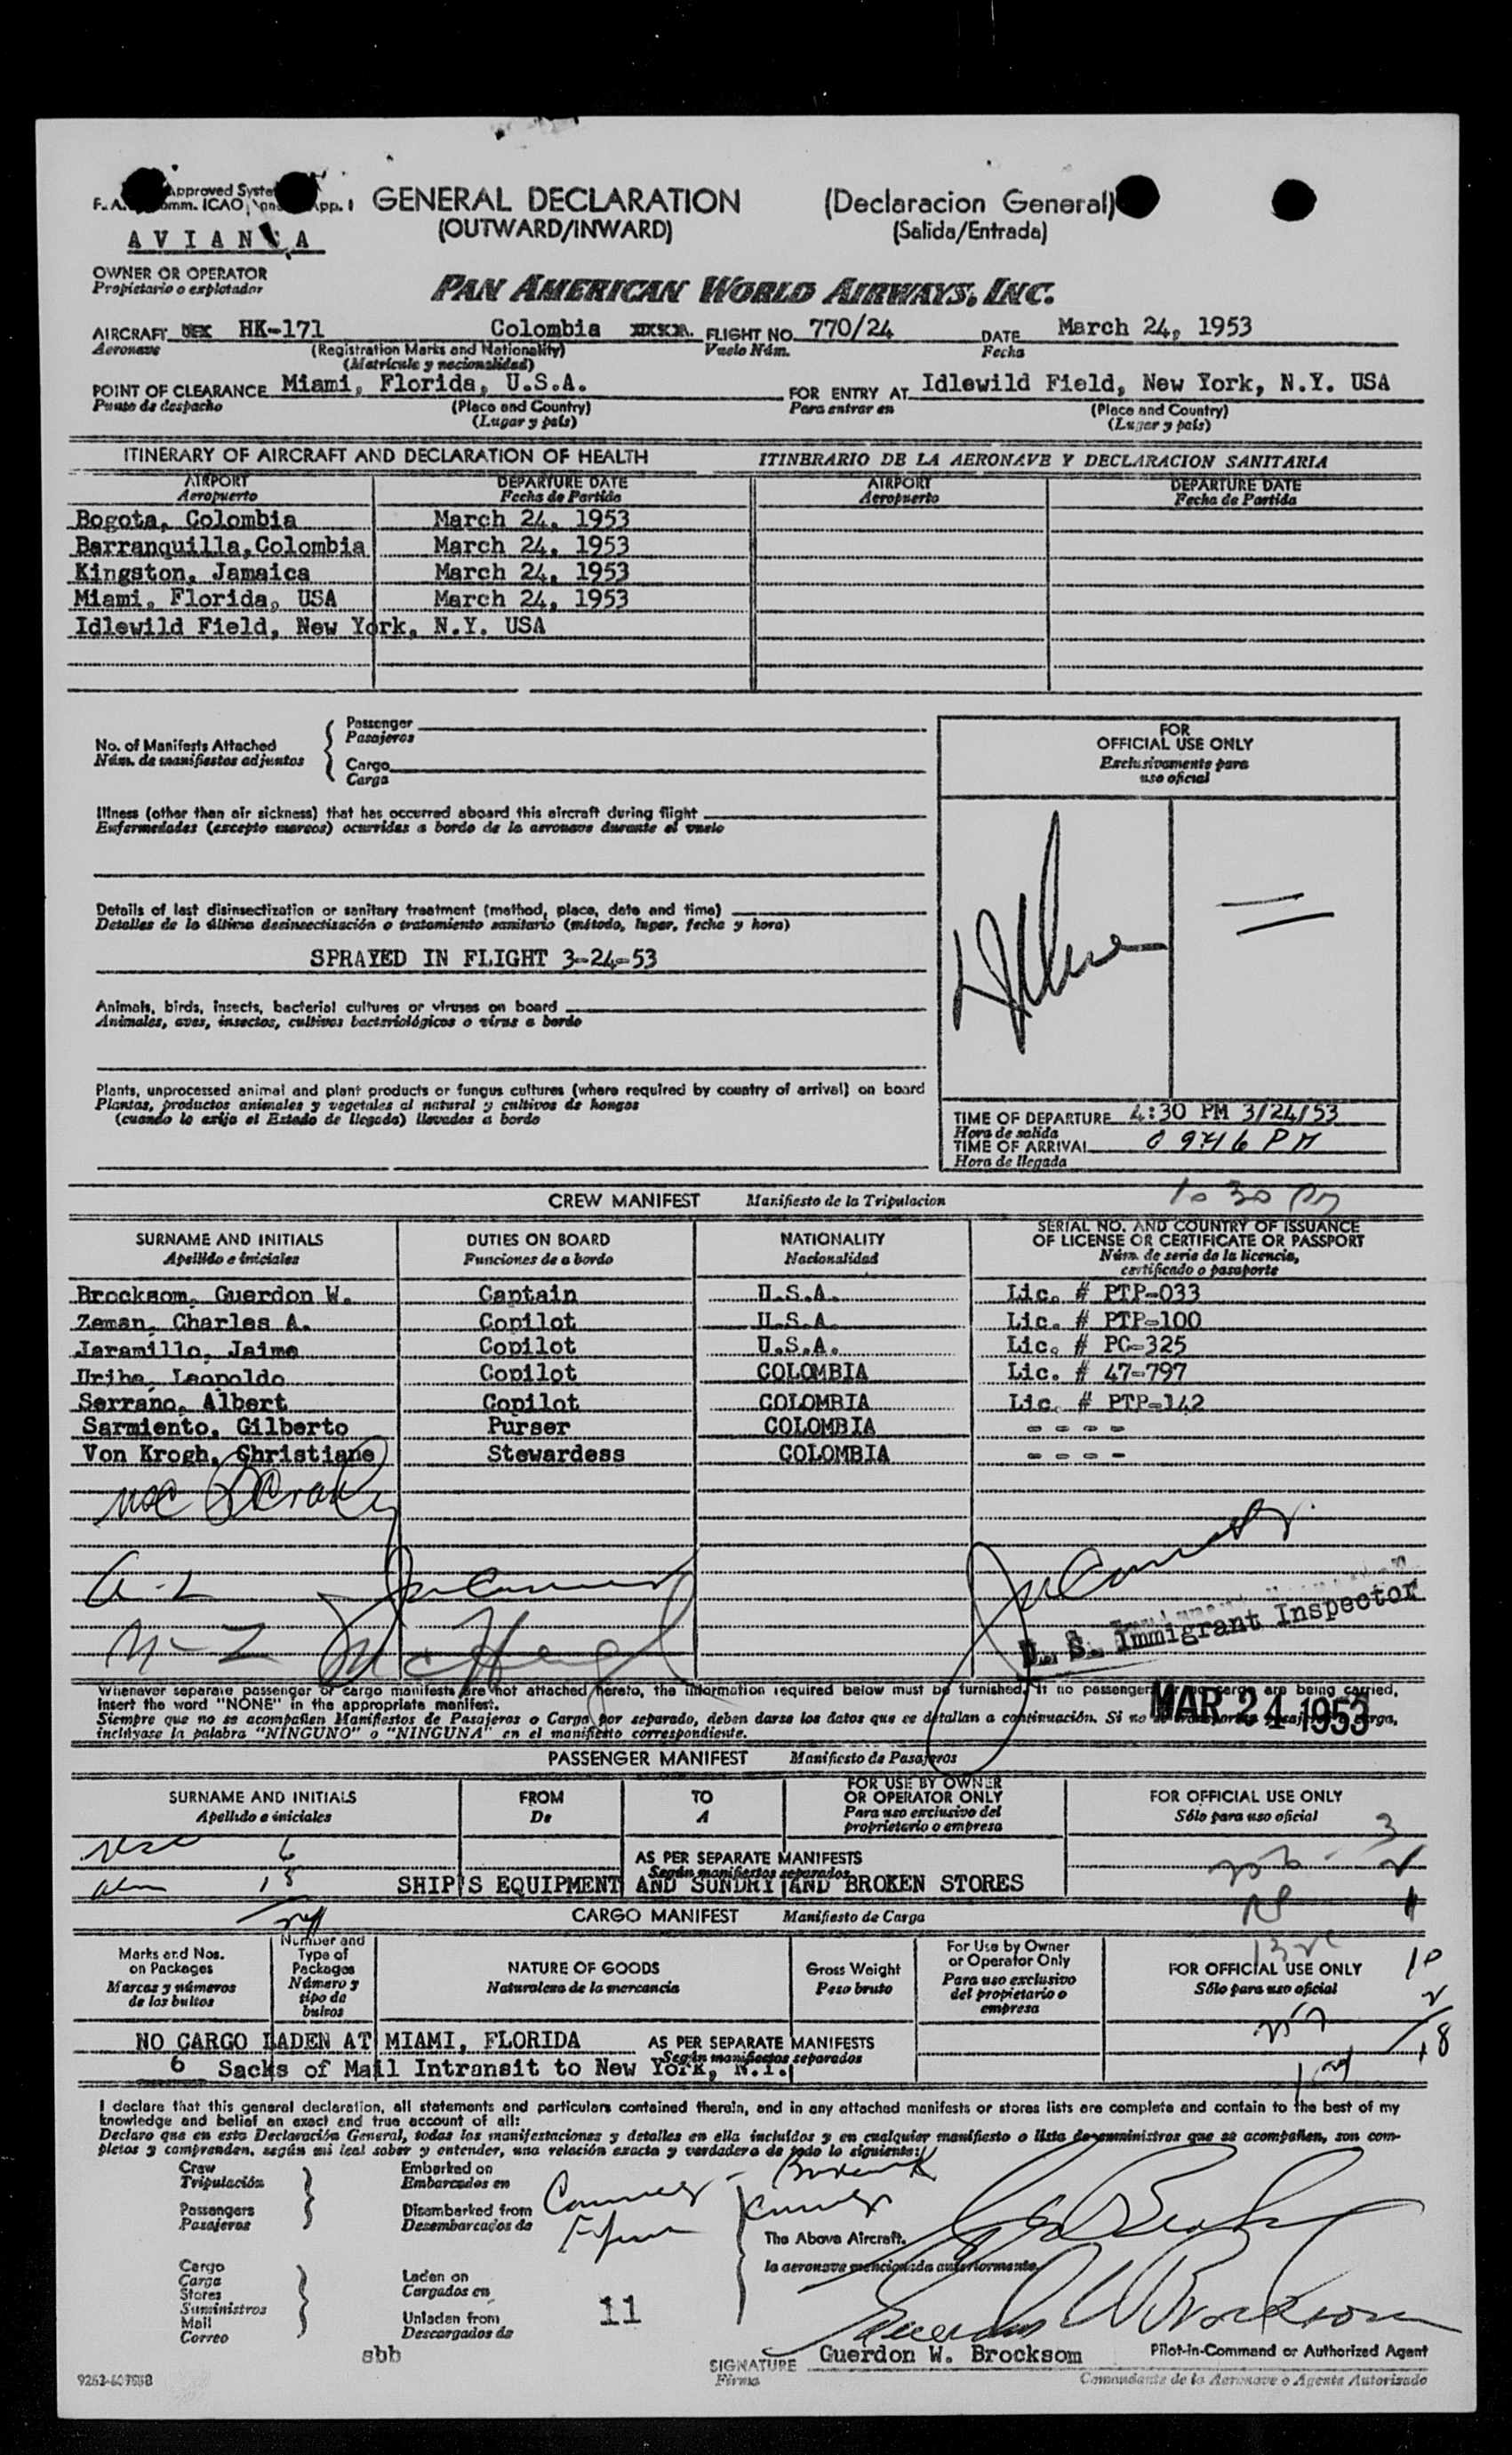 Approved System
F. A. Comm. ICAO Annex App. 1
GENERAL DECLARATION
(OUTWARD/INWARD)
(Declaracion General)
(Salida/Entrada)
AVIANCA
OWNER OR OPERATOR
Propietario o explotador
PAN AMERICAN WORLD AIRWAYS, INC.
AIRCRAFT HK-171 Colombia FLIGHT NO. 770/24 DATE March 24, 1953
Aeronave (Registration Marks and Nationality) Vuelo Núm. Fecha
(Matrícula y nacionalidad)
POINT OF CLEARANCE Miami, Florida, U.S.A. FOR ENTRY AT Idlewild Field, New York, N.Y. USA
Punto de despacho (Place and Country) Para entrar en (Place and Country)
(Lugar y país) (Lugar y país)
ITINERARY OF AIRCRAFT AND DECLARATION OF HEALTH ITINERARIO DE LA AERONAVE Y DECLARACION SANITARIA
AIRPORT DEPARTURE DATE AIRPORT DEPARTURE DATE
Aeropuerto Fecha de Partida Aeropuerto Fecha de Partida
Bogota, Colombia March 24, 1953
Barranquilla, Colombia March 24, 1953
Kingston, Jamaica March 24, 1953
Miami, Florida, USA March 24, 1953
Idlewild Field, New York, N.Y. USA
No. of Manifests Attached
Núm. de manifiestos adjuntos
Passenger
Pasajeros
Cargo
Carga
FOR
OFFICIAL USE ONLY
Exclusivamente para
uso oficial
Illness (other than air sickness) that has occurred aboard this aircraft during flight
Enfermedades (excepto mareos) ocurridas a bordo de la aeronave durante el vuelo
Details of last disinsectization or sanitary treatment (method, place, date and time)
Detalles de la última desinsectización o tratamiento sanitario (método, lugar, fecha y hora)
SPRAYED IN FLIGHT 3-24-53
Animals, birds, insects, bacterial cultures or viruses on board
Animales, aves, insectos, cultivos bacteriológicos o virus a bordo
Plants, unprocessed animal and plant products or fungus cultures (where required by country of arrival) on board
Plantas, productos animales y vegetales al natural y cultivos de hongos
(cuando lo exija el Estado de llegada) llevados a bordo
TIME OF DEPARTURE 4:30 PM 3/24/53
Hora de salida
TIME OF ARRIVAL 0946 PM
Hora de llegada
10 30 PM
CREW MANIFEST Manifiesto de la Tripulacion
SURNAME AND INITIALS DUTIES ON BOARD NATIONALITY SERIAL NO. AND COUNTRY OF ISSUANCE
OF LICENSE OR CERTIFICATE OR PASSPORT
Apellido e iniciales Funciones de a bordo Nacionalidad Núm. de serie de la licencia,
certificado o pasaporte
Brocksom, Guerdon W. Captain U.S.A. Lic. # PTP-033
Zeman, Charles A. Copilot U.S.A. Lic. # PTP-100
Jaramillo, Jaime Copilot U.S.A. Lic. # PC-325
Uribe, Leopoldo Copilot COLOMBIA Lic. # 47-797
Serrano, Albert Copilot COLOMBIA Lic. # PTP-142
Sarmiento, Gilberto Purser COLOMBIA - - - -
Von Krogh, Christiane Stewardess COLOMBIA - - - -
U. S. Immigrant Inspector
Whenever separate passenger or cargo manifests are not attached hereto, the information required below must be furnished. If no passengers or cargo are being carried,
insert the word "NONE" in the appropriate manifest.
Siempre que no se acompañen Manifiestos de Pasajeros o Carga por separado, deben darse los datos que se detallan a continuación. Si no se transportan pasajeros o carga,
inclúyase la palabra "NINGUNO" o "NINGUNA" en el manifiesto correspondiente.
MAR 24 1953
PASSENGER MANIFEST Manifiesto de Pasajeros
SURNAME AND INITIALS FROM TO FOR USE BY OWNER
OR OPERATOR ONLY FOR OFFICIAL USE ONLY
Apellido e iniciales De A Para uso exclusivo del
proprietario o empresa Sólo para uso oficial
AS PER SEPARATE MANIFESTS
Según manifiestos separados
SHIP'S EQUIPMENT AND SUNDRY AND BROKEN STORES
CARGO MANIFEST Manifiesto de Carga
Marks and Nos.
on Packages
Marcas y números
de los bultos
Number and
Type of
Packages
Número y
tipo de
bultos
NATURE OF GOODS
Naturaleza de la mercancia
Gross Weight
Peso bruto
For Use by Owner
or Operator Only
Para uso exclusivo
del propietario o
empresa
FOR OFFICIAL USE ONLY
Sólo para uso oficial
NO CARGO LADEN AT MIAMI, FLORIDA AS PER SEPARATE MANIFESTS
Según manifiestos separados
6 Sacks of Mail Intransit to New York, N.Y.
I declare that this general declaration, all statements and particulars contained therein, and in any attached manifests or stores lists are complete and contain to the best of my
knowledge and belief an exact and true account of all:
Declaro que en esta Declaración General, todas las manifestaciones y detalles en ella incluídos y en cualquier manifiesto o lista de suministros que se acompañen, son com-
pletos y comprenden, según mi leal saber y entender, una relación exacta y verdadera de todo lo siguiente:
Crew
Tripulación
Passengers
Pasajeros
Embarked on
Embarcados en
Disembarked from
Desembarcados de
The Above Aircraft.
la aeronave mencionada anteriormente.
Cargo
Carga
Stores
Suministros
Mail
Correo
Laden on
Cargados en
Unladen from
Descargados de
11
sbb
Guerdon W Brocksom
SIGNATURE Guerdon W. Brocksom Pilot-in-Command or Authorized Agent
Firma Comandante de la Aeronave o Agente Autorizado